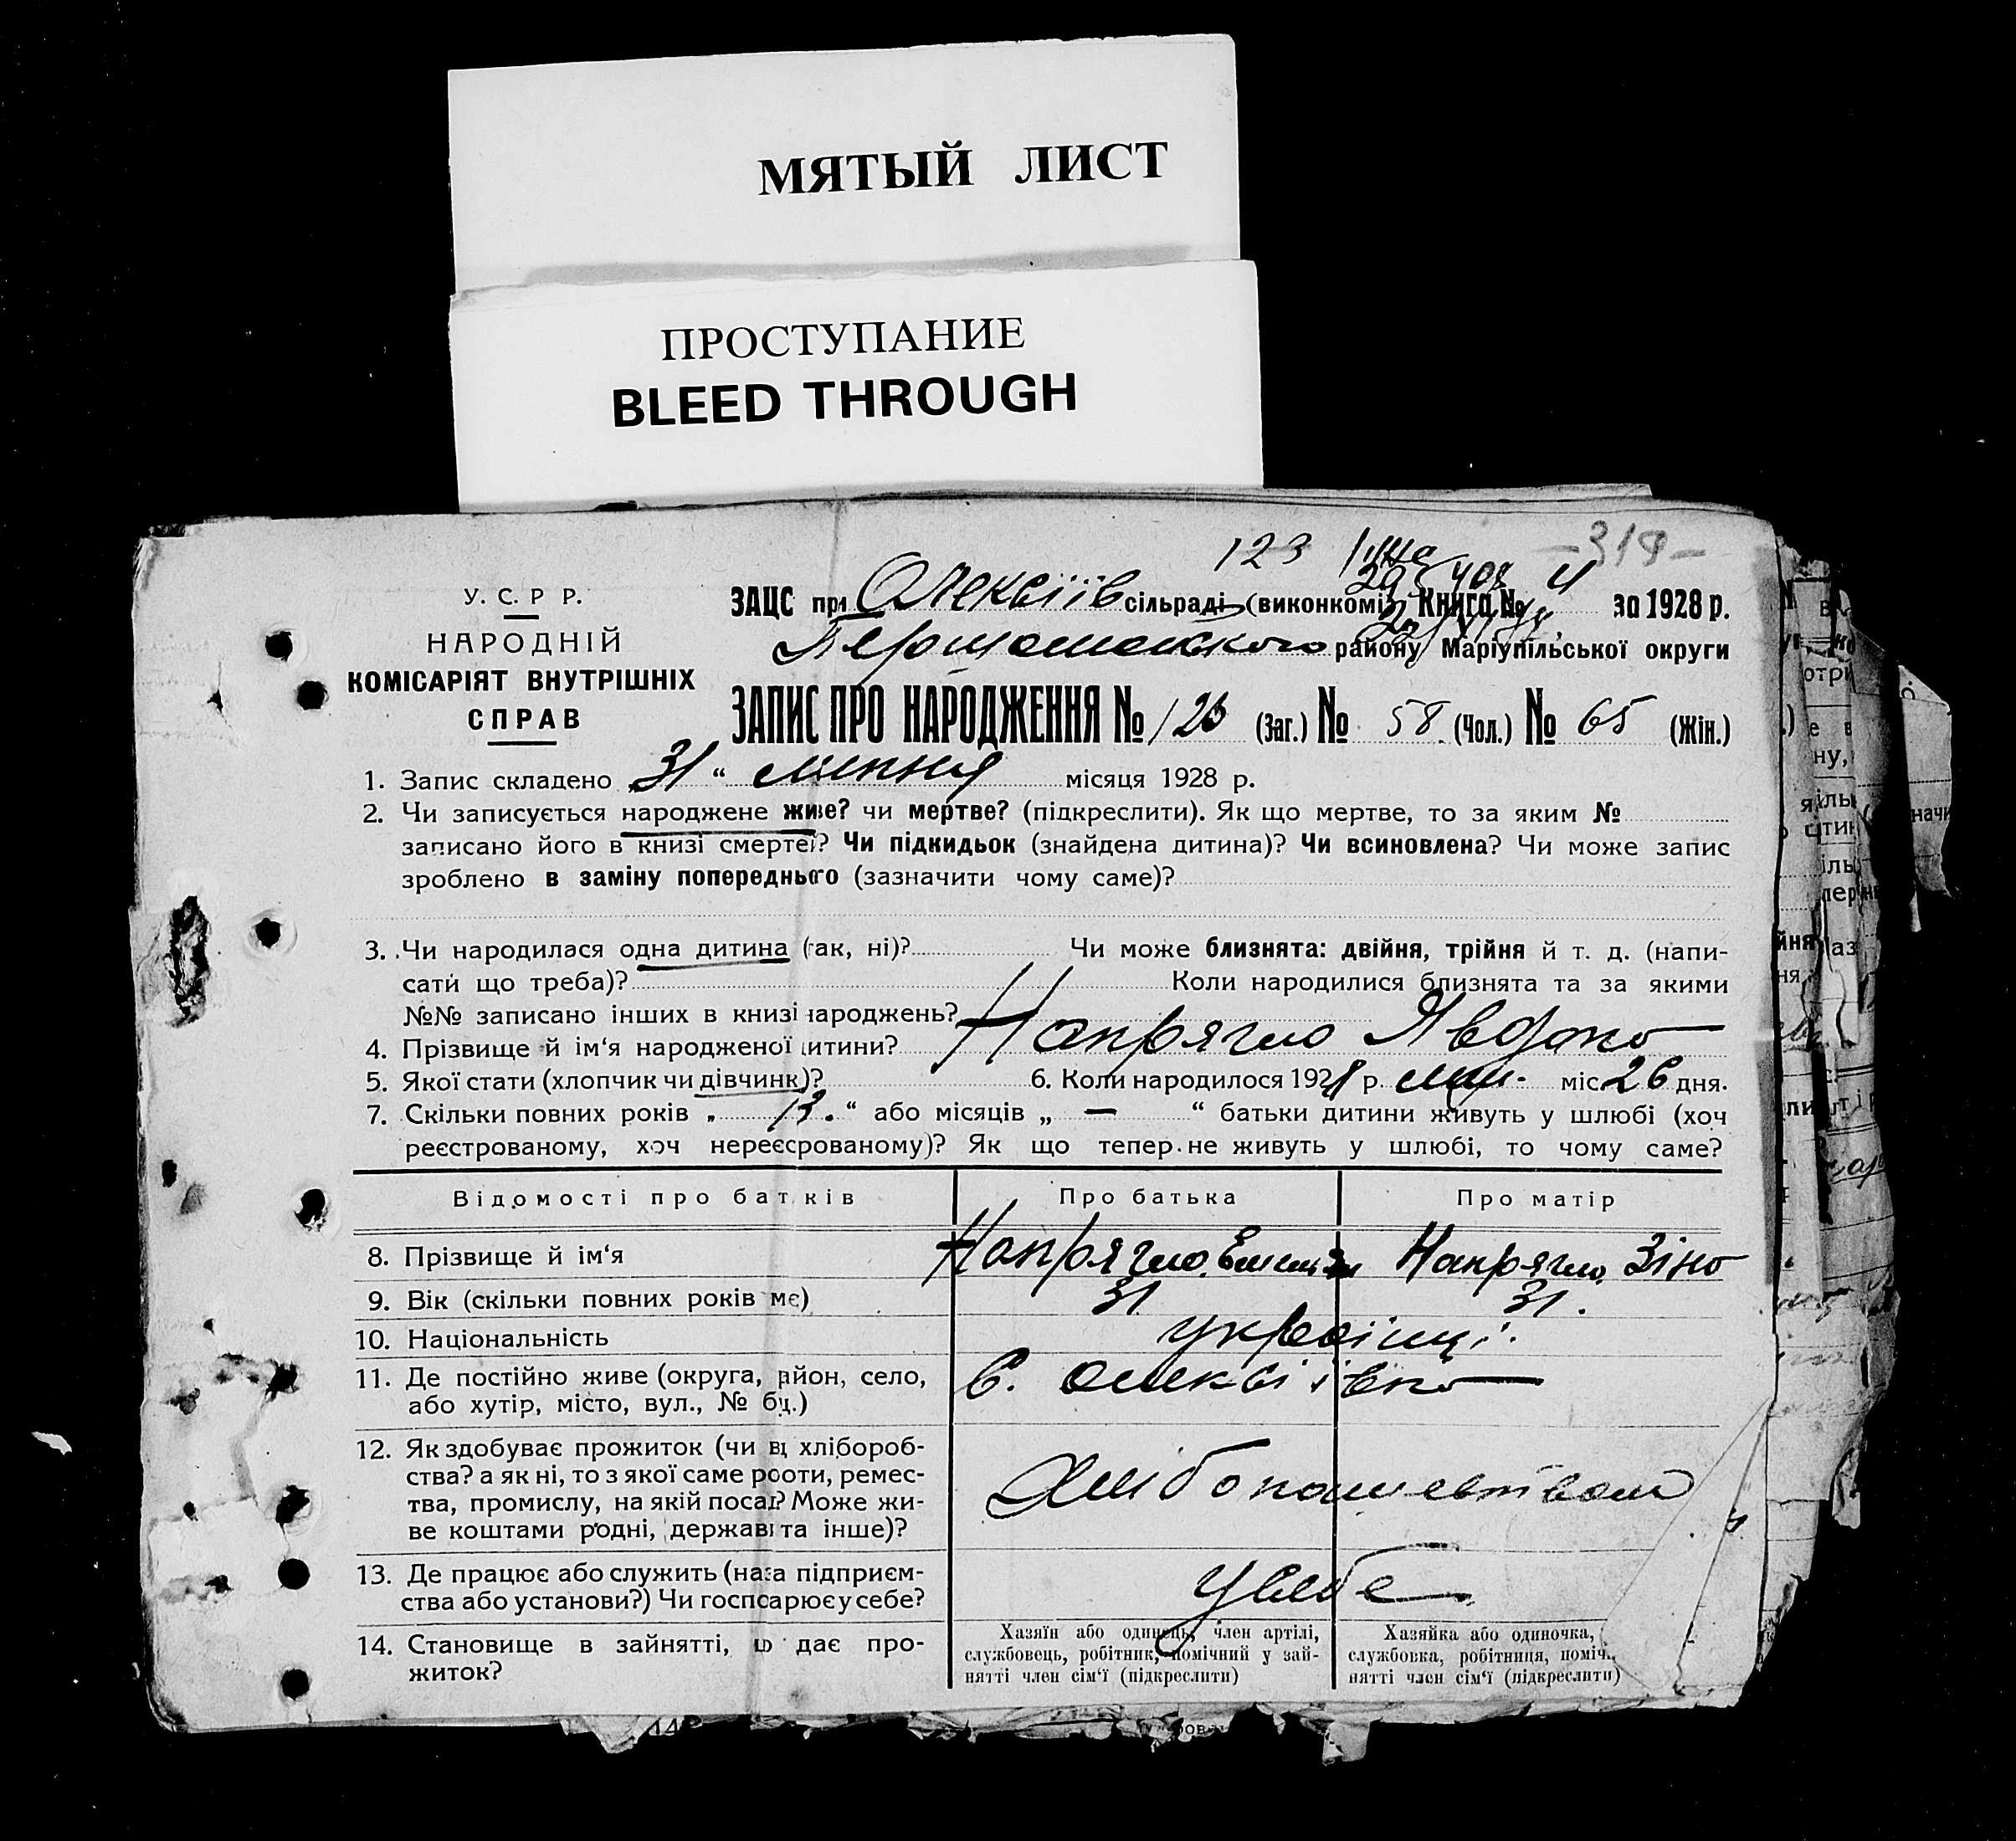 МЯТЫЙ ЛИСТ
ПРОСТУПАНИЕ
BLEED THROUGH
123
-319-
У. С. Р Р.
НАРОДНІЙ
КОМІСАРІЯТ ВНУТРІШНІХ
СПРАВ
ЗАЦС при Олексіїв сільраді (виконкомі) Книга № 4 за 1928 р.
Першомайського району Маріупільської округи
ЗАПИС ПРО НАРОДЖЕННЯ № 123 (Заг.) № 58 (Чол.) № 65 (Жін.)
1. Запис складено 31 " липня місяця 1928 р.
2. Чи записується народжене живе? чи мертве? (підкреслити). Як що мертве, то за яким №
записано його в книзі смертей? Чи підкидьок (знайдена дитина)? Чи всиновлена? Чи може запис
зроблено в заміну попереднього (зазначити чому саме)?
3. Чи народилася одна дитина (так, ні)? Чи може близнята: двійня, трійня й т. д. (напи-
сати що треба)? Коли народилися близнята та за якими
№№ записано інших в книзі народжень?
4. Прізвище й ім'я народженої дитини? Напрягло Явдоко
5. Якої стати (хлопчик чи дівчинк)? 6. Коли народилося 1928 р. лип. міс. 26 дня.
7. Скільки повних років „ 13. " або місяців „ — " батьки дитини живуть у шлюбі (хоч
реєстрованому, хоч нереєсрованому)? Як що тепер не живуть у шлюбі, то чому саме?
Відомості про батків Про батька Про матір
8. Прізвище й ім'я Напрягло Напрягло Зіно
9. Вік (скільки повних років має) 31 31.
10. Національність українці.
11. Де постійно живе (округа, район, село, С. Олексіївко
або хутір, місто, вул., № буд.)
12. Як здобуває прожиток (чи від хлібороб-
ства? а як ні, то з якої саме роботи, ремес-
тва, промислу, на якій посаді? Може жи- Хлібопашевством
ве коштами родні, держави та інше)?
13. Де працює або служить (назва підприєм- У себе
ства або установи?) Чи господарює у себе?
14. Становище в зайнятті, що дає про-
житок?
Хазяїн або одинець, член артілі,
службовець, робітник, помічний у зай-
нятті член сім'ї (підкреслити)
Хазяйка або одиночка,
службовка, робітниця, поміч.
нятті член сім'ї (підкреслити)